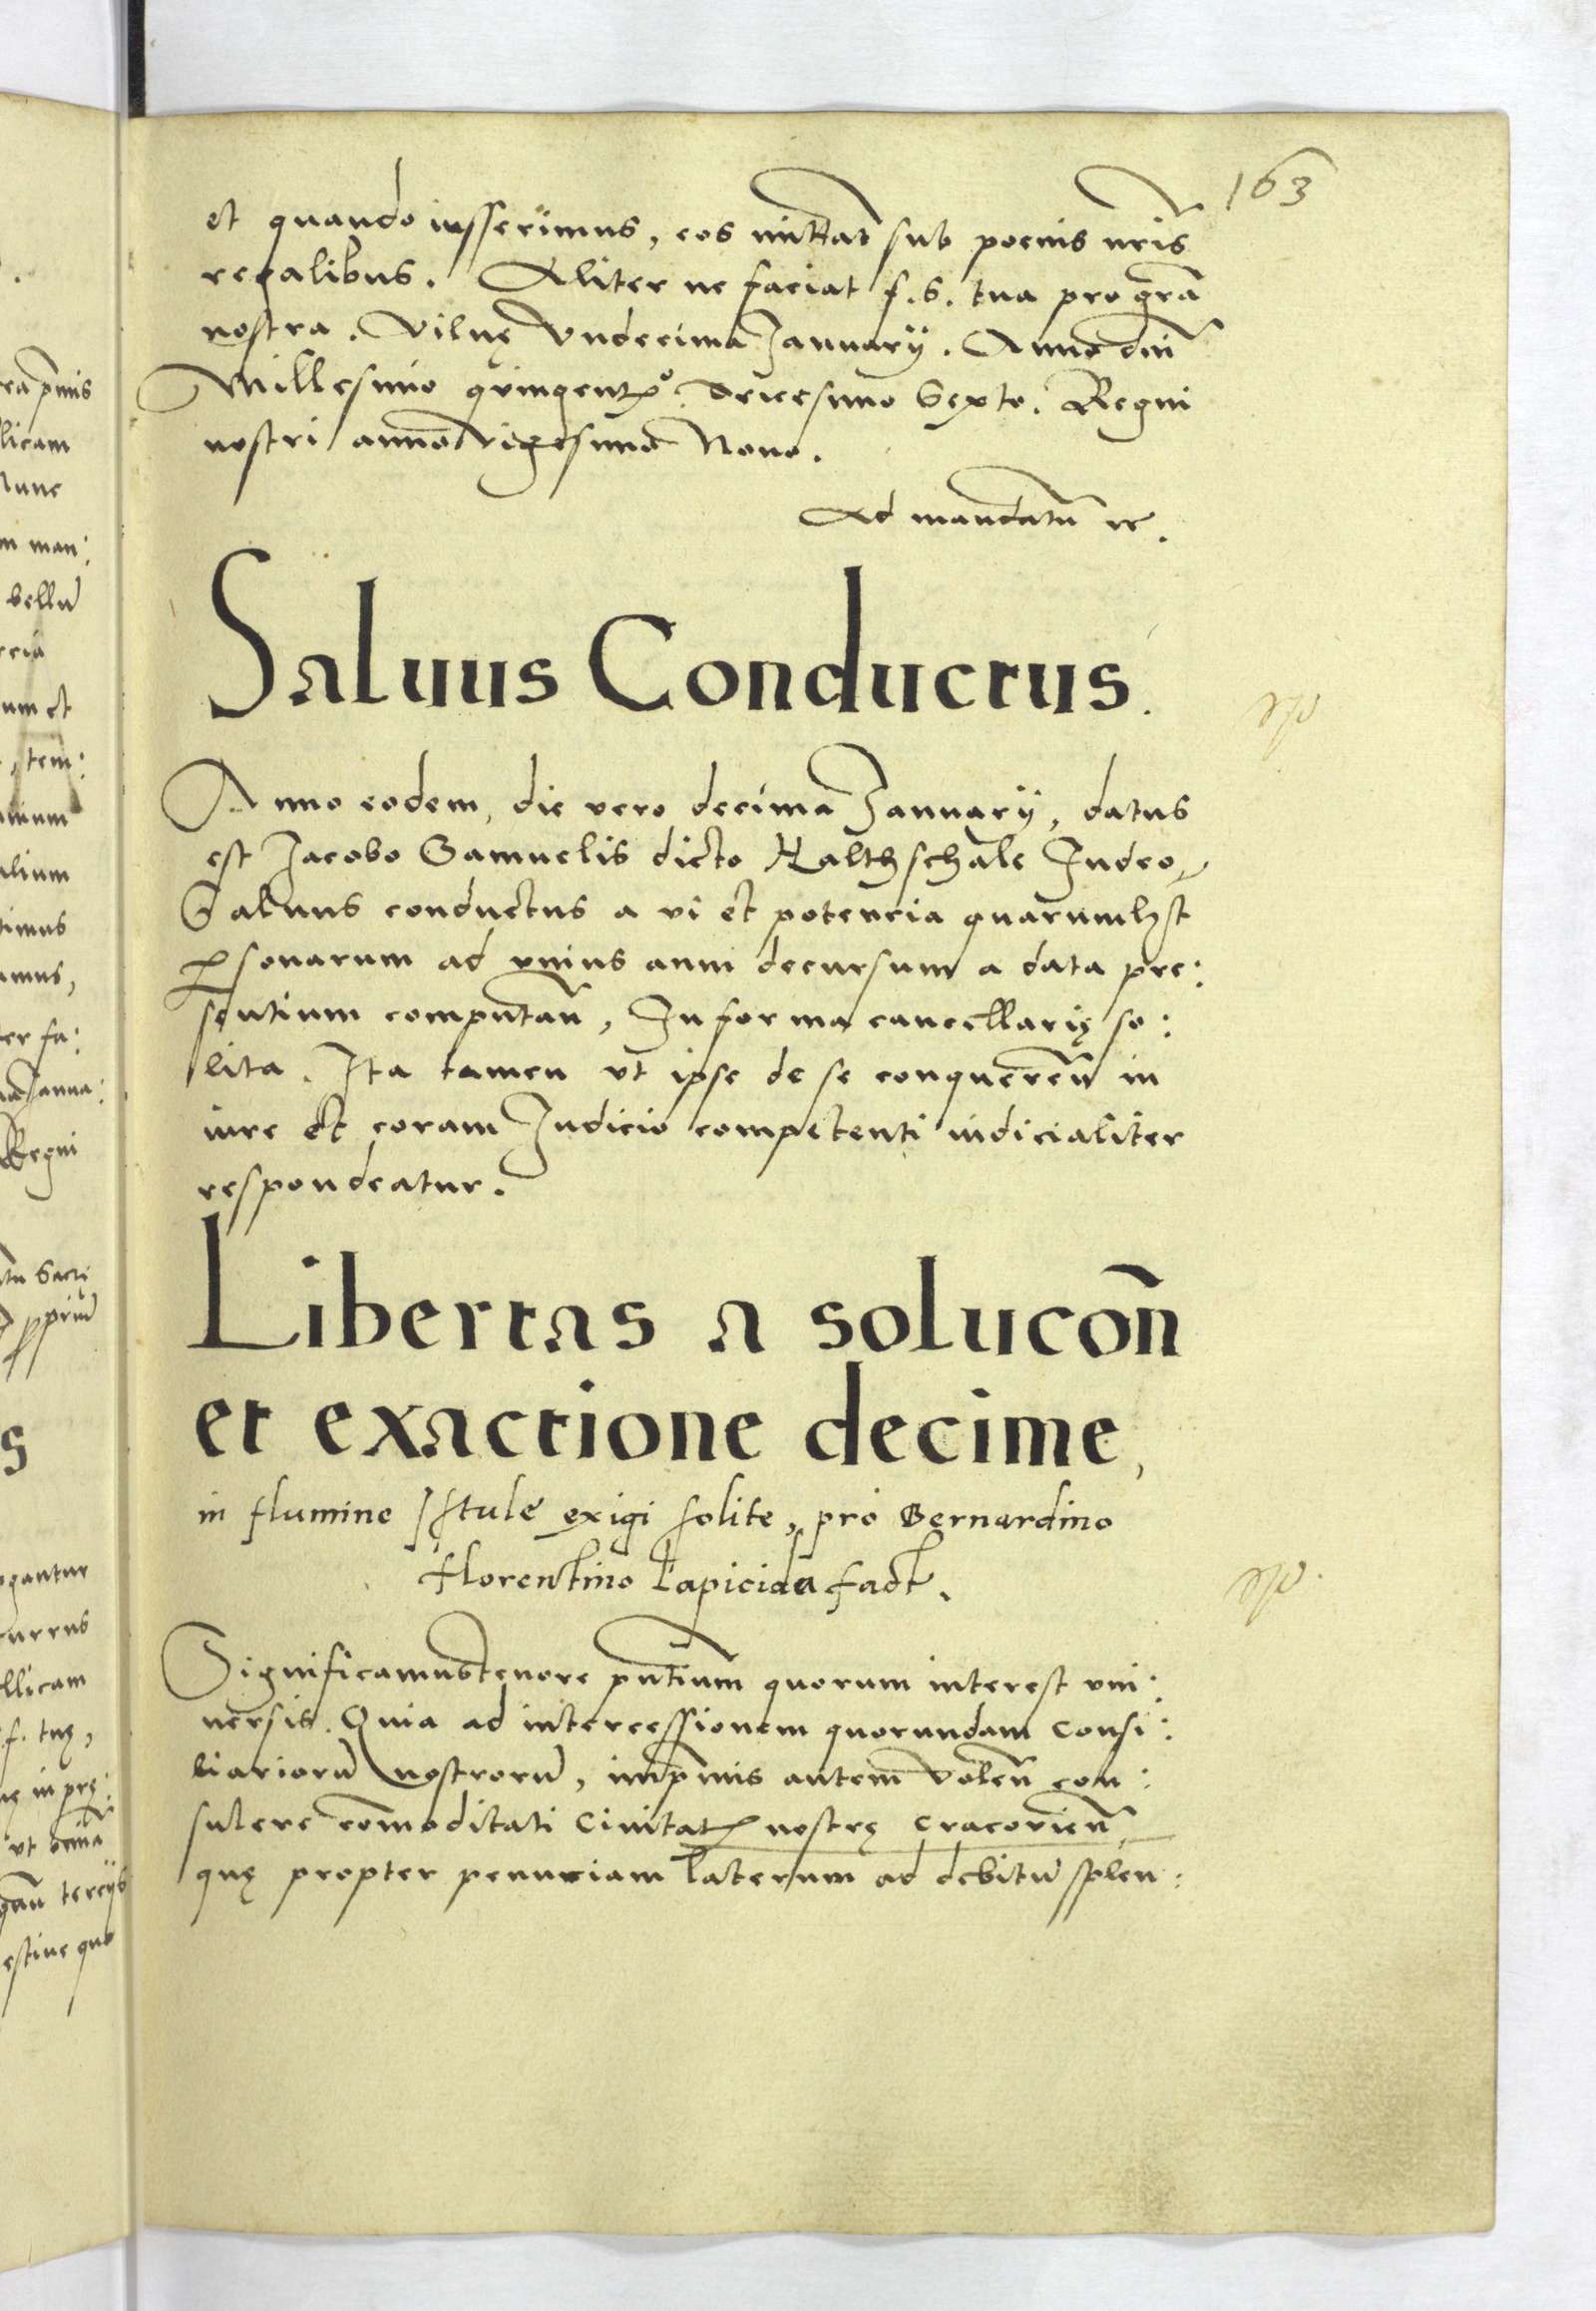 163
et quando iusserimus, eos mittat sub poenis nris
regalibus. Aliter ne faciat f. s. tua pro gra
nostra. Vilnę Vndecima Januarÿ. Anno dni
Millesimo quingentο. Tricesimo Sexto. Regni
nostri anno vigesimo Nono.
Ad mandatu
Saluus Conductus.
Anno eodem, die vero decima Januarÿ, datus
est Jacobo Samuelis dicto Kalthschale Iudeo
Saluus conductus a vi et potencia quarumlꝫt
ꝑsonarum ad vnius anni decursum a data pre:
sentium computan, In forma cancellarię so:
lita. Ita tamen vt ipse de se conqueren in
iure et coram Judicio competenti iudicialiter
respondeatur.
Libertas a solucõn
et exactione decime,
in flumine Istule exigi solite, pro Bernardino
florentino lapicida fact.
Significamus tenore pntium quorum interest vni:
uersis. Quia ad intercessionem quorundam Consi:
liarioru nostroru, imprimis autem volen con:
sulere comoditati Ciuitatꝭ nostrę Cracovien
quę propter penuriam laterum ad debitu splen: